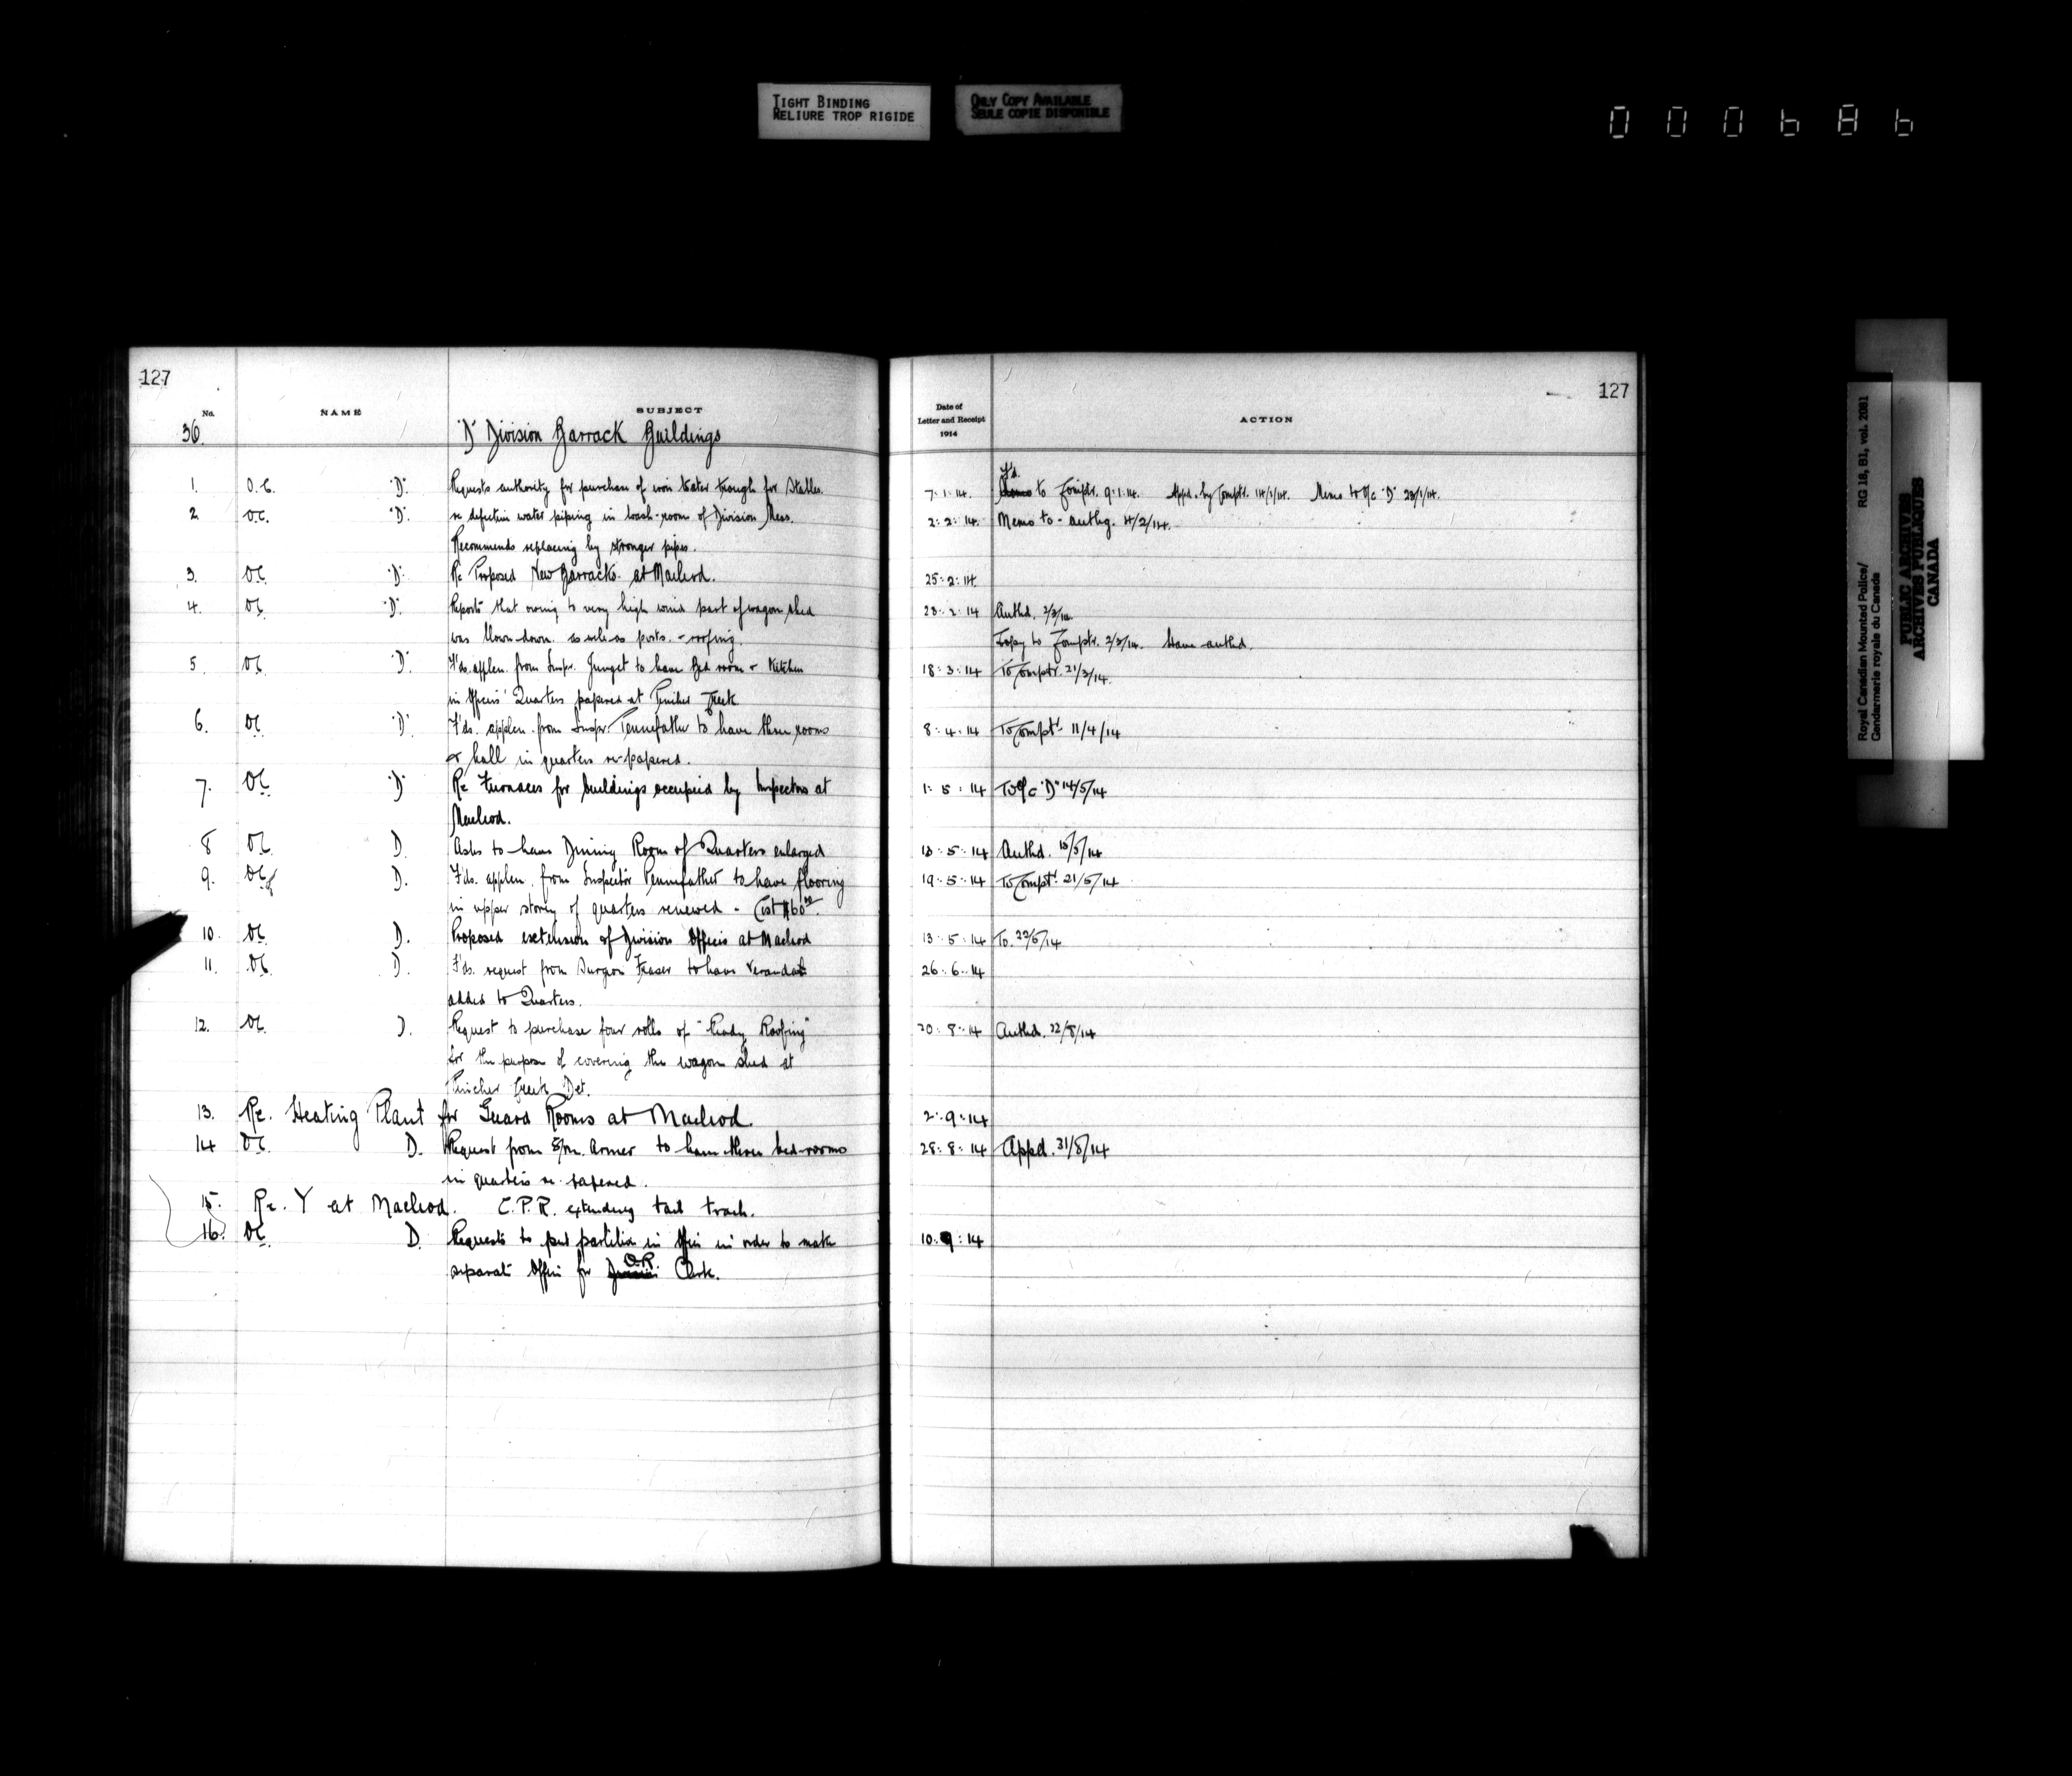 TIGHT BINDING
RELIURE TROP RIGIDE
ONLY COPY AVAILABLE
SEULE COPIE DISPONIBLE
000686
127
No. NAME SUBJECT
36. "D" Division Barrack Buildings
1. O.C. "D". Requests authority for purchase of iron water trough for Stables.
2 O.C. "D". re defective water piping in wash-room of Division Mess.
Recommends replacing by stronger pipes.
3. OC "D". Re Proposed New Barracks at Macleod.
4. OC "D". Reports that owing to very high wind part of wagon shed
was blown down. as well as posts. - roofing.
5. OC "D". F'ds. applcn. from Inspr. to have Bed room & Kitchen
in Officers' Quarters papered at Pincher Creek
6. OC "D". F'ds. applcn. from Inspr. Pennefather to have three rooms
& hall in quarters re-papered.
7. OC "D" Re Furnaces for buildings occupied by Inspectors at
Macleod.
8 OC D. Asks to have Dining Room of Quarters enlarged
9. OC D. F'ds. applcn. from Inspector Pennefather to have flooring
in upper storey of quarters renewed - Cost $60.00.
10. OC D. Proposed extension of Division Offices at Macleod
11. OC D. F'ds. request from Surgeon Fraser to have Verandah
added to Quarters.
12. OC D. Request to purchase four rolls of "Ready Roofing"
for the purpose of covering the wagon shed at
Pincher Creek Det.
13. Re. Heating Plant for Guard Rooms at Macleod.
14 OC D. Request from S/M. Armer to have three bed-rooms
in quarters re-papered.
15. Re. Y at Macleod. C.P.R. extending tail track.
16. OC D. Requests to put partition in Office in order to make
separate Office for Division Q.R. Clerk.
127
Date of
Letter and Receipt
1914
ACTION
F'd.
7.1.14. Memo to Comptr. 9.1.14. Appd. by Comptr. 14/1/14. Memo to O/C "D" 23/1/14.
2.2.14. Memo to - authg. 4/2/14.
25.2.14.
28.2.14 Authd. 2/3/14
Copy to Comptr. 2/3/14. Have authd.
18.3.14 To Comptr. 21/3/14.
8.4.14 To Compt. 11/4/14
1.5.14 To O/C "D" 14/5/14
13.5.14 Authd. 15/5/14
19.5.14 To Compt. 21/5/14
13.5.14 To. 22/5/14
26.6.14
20.8.14 Authd. 22/8/14
2.9.14
28.8.14 Appd. 31/8/14
10.9.14
Royal Canadian Mounted Police/ RG 18, B1, vol. 2081
Gendarmerie royale du Canada
PUBLIC ARCHIVES
ARCHIVES PUBLIQUES
CANADA